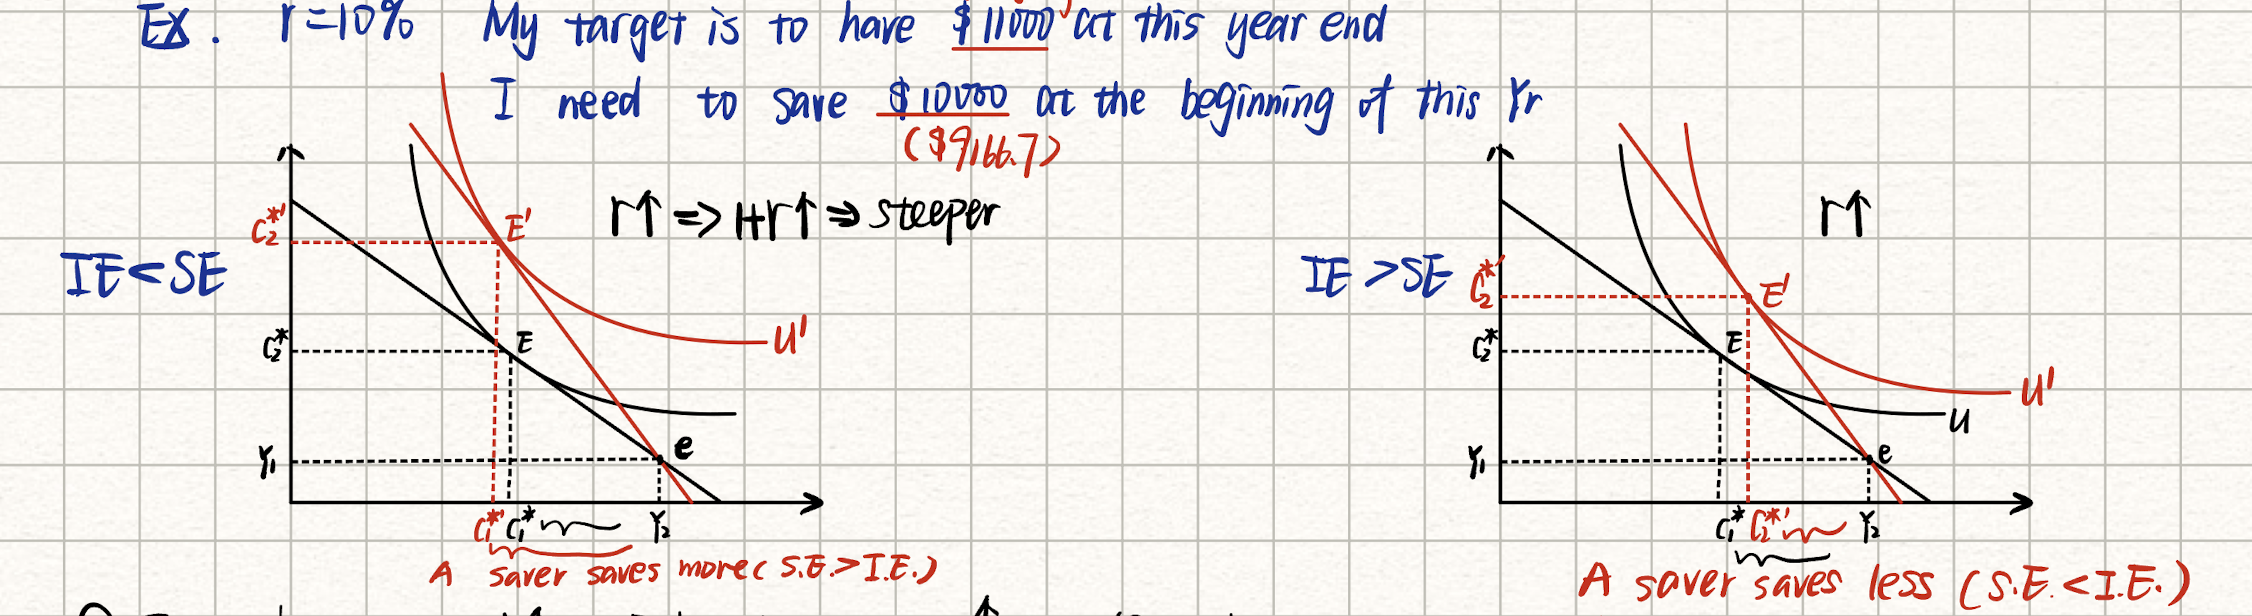 Ex. r=10% My target is to have $11000 at this year end
I need to save $10000 at the beginning of this Yr
($9166.7)
r↑ => 1+r↑ => steeper
IE<SE
C₂*'
E'
C₂*
E
U'
Y₁
e
C₁*' C₁* Y₂
A saver saves more (S.E.>I.E.)
r↑
IE>SE
C₂*'
E'
C₂*
E
U'
U
Y₁
e
C₁* C₂*' Y₂
A saver saves less (S.E.<I.E.)